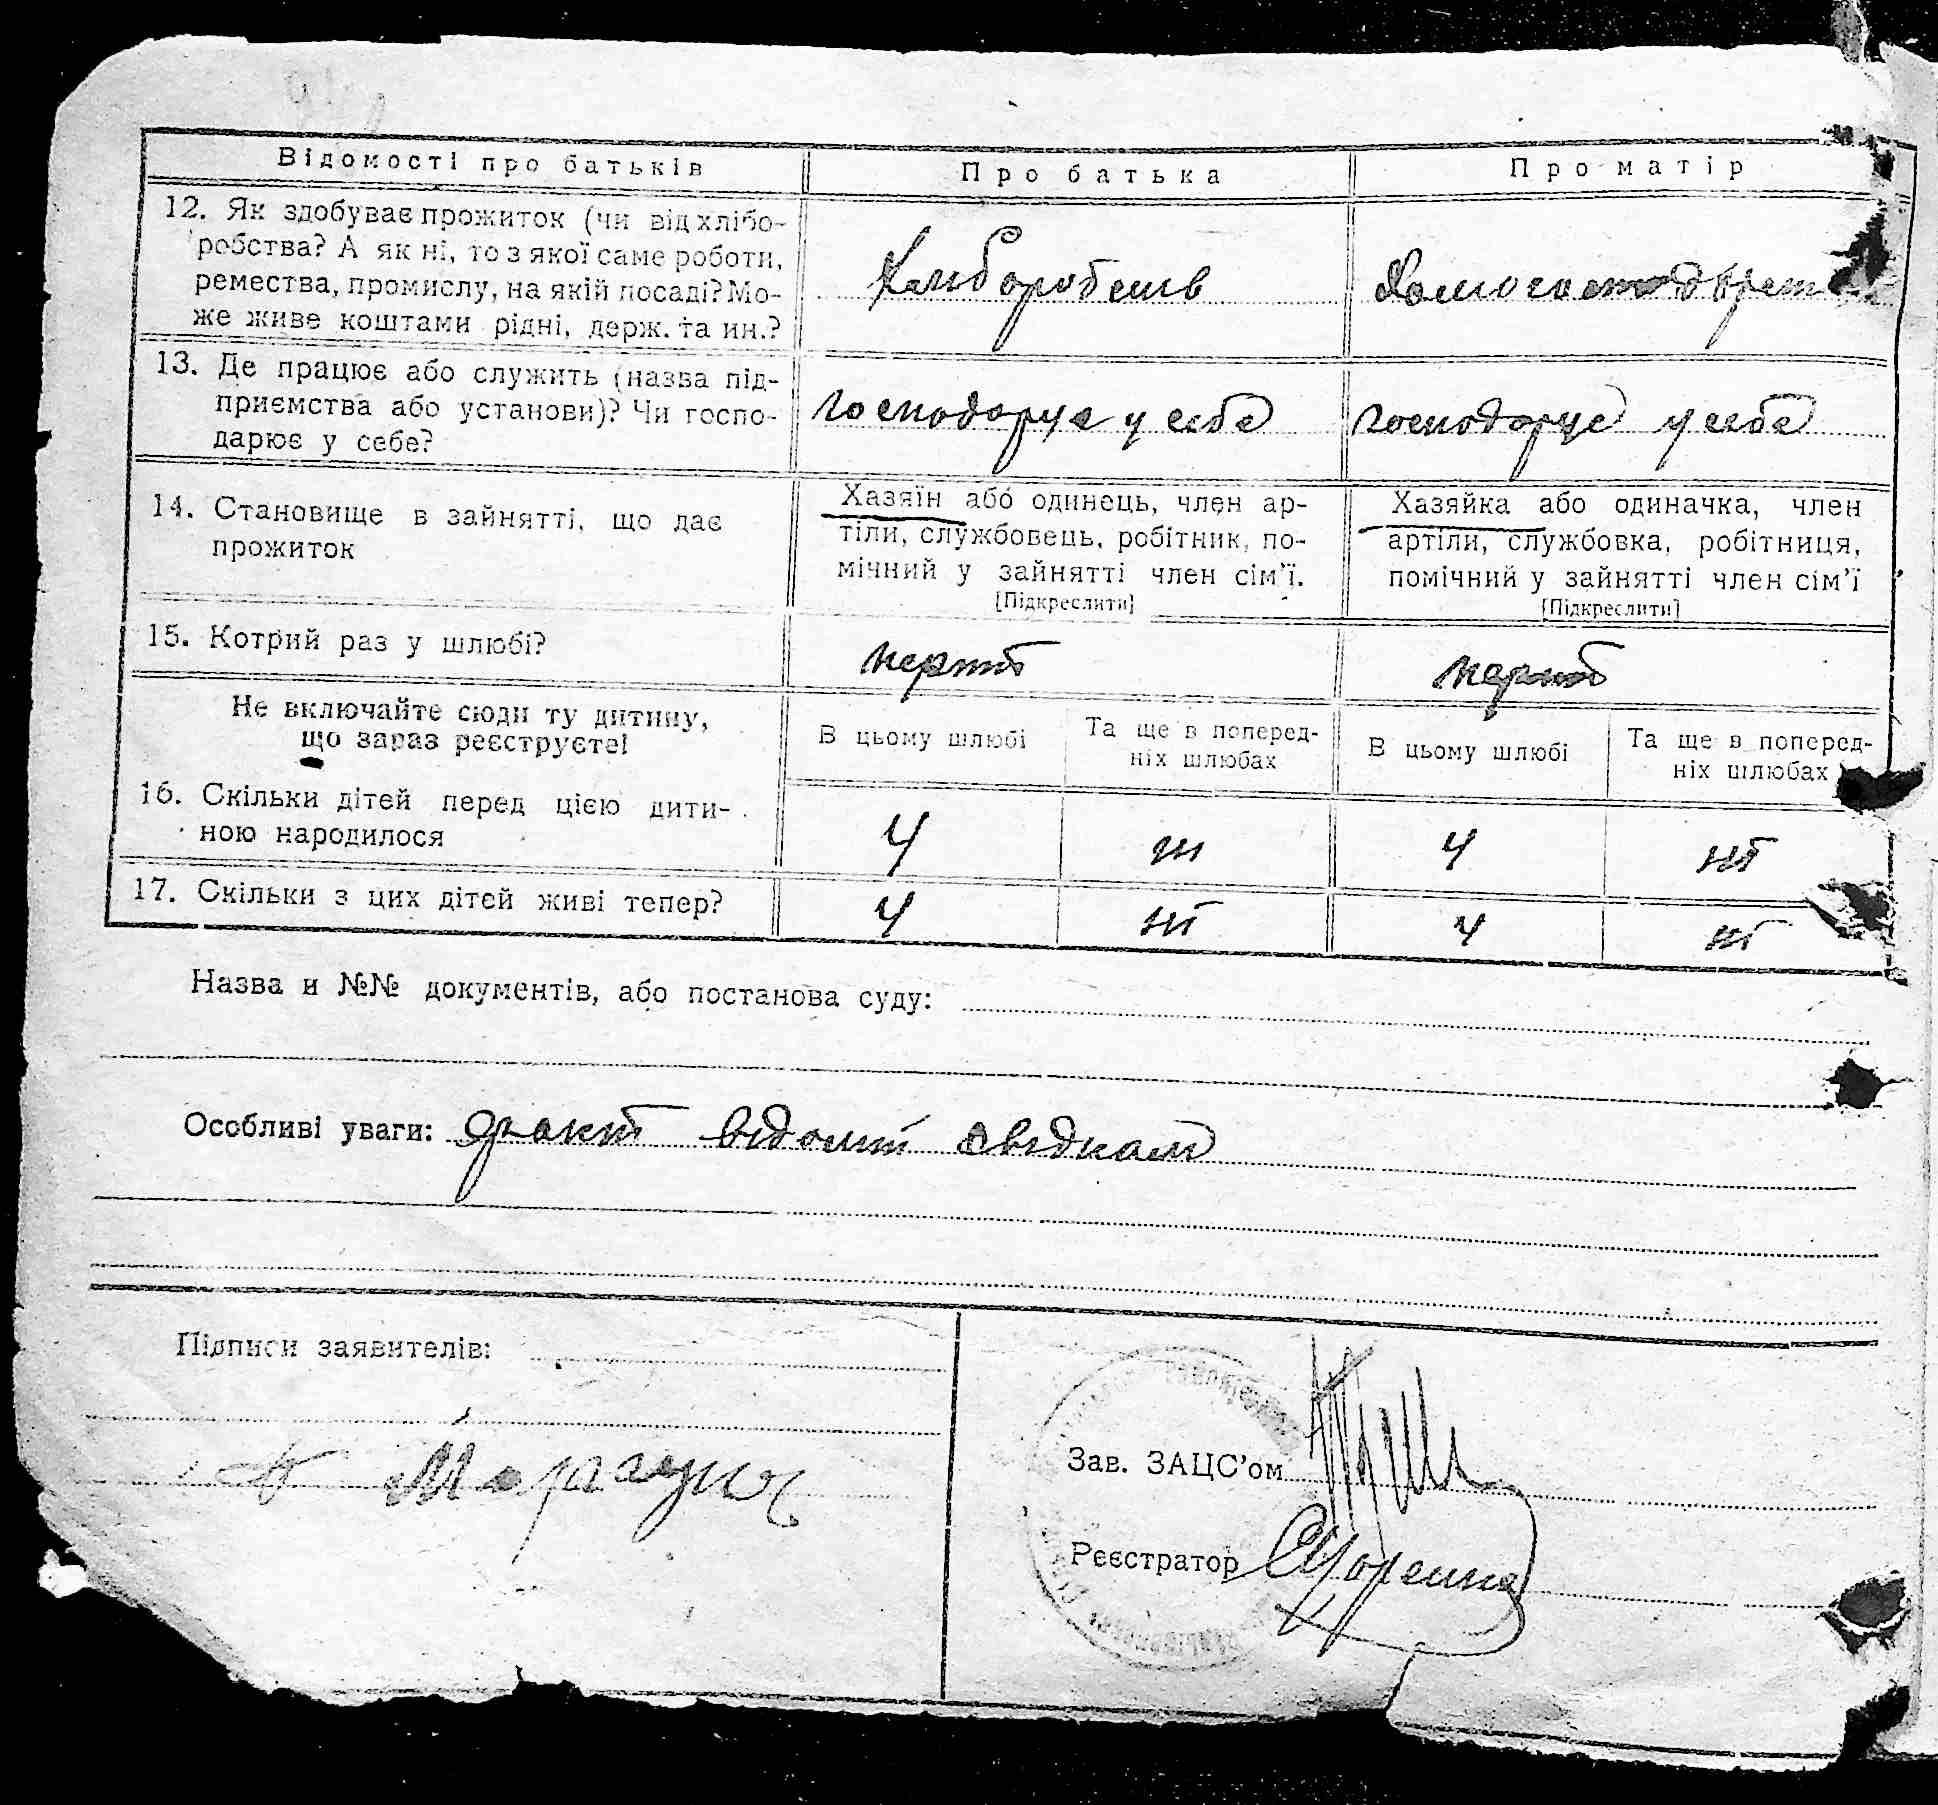 Відомості про батьків
Про батька
Про матір
12. Як здобуває прожиток (чи від хлібо-
робства? А як ні, то з якої саме роботи,
ремества, промислу, на якій посаді? Мо-
же живе коштами рідні, держ. та ин.?
13. Де працює або служить (назва під-
приємства або установи)? Чи госпо-
дарює у себе?
господарує у себе
господарує у себе
14. Становище в зайнятті, що дає
прожиток
Хазяїн або одинець, член ар-
тіли, службовець, робітник, по-
мічний у зайнятті член сім'ї.
[Підкреслити]
Хазяйка або одиначка, член
артіли, службовка, робітниця,
помічний у зайнятті член сім'ї
[Підкреслити]
15. Котрий раз у шлюбі?
Не включайте сюди ту дитину,
що зараз реєструєте!
В цьому шлюбі
Та ще в поперед-
ніх шлюбах
В цьому шлюбі
Та ще в поперед-
ніх шлюбах
16. Скільки дітей перед цією дити-
ною народилося
4
4
17. Скільки з цих дітей живі тепер?
4
4
Назва и №№ документів, або постанова суду:
Особливі уваги: факт відомий свідкам
Підписи заявителів:
Зав. ЗАЦС'ом
Реєстратор